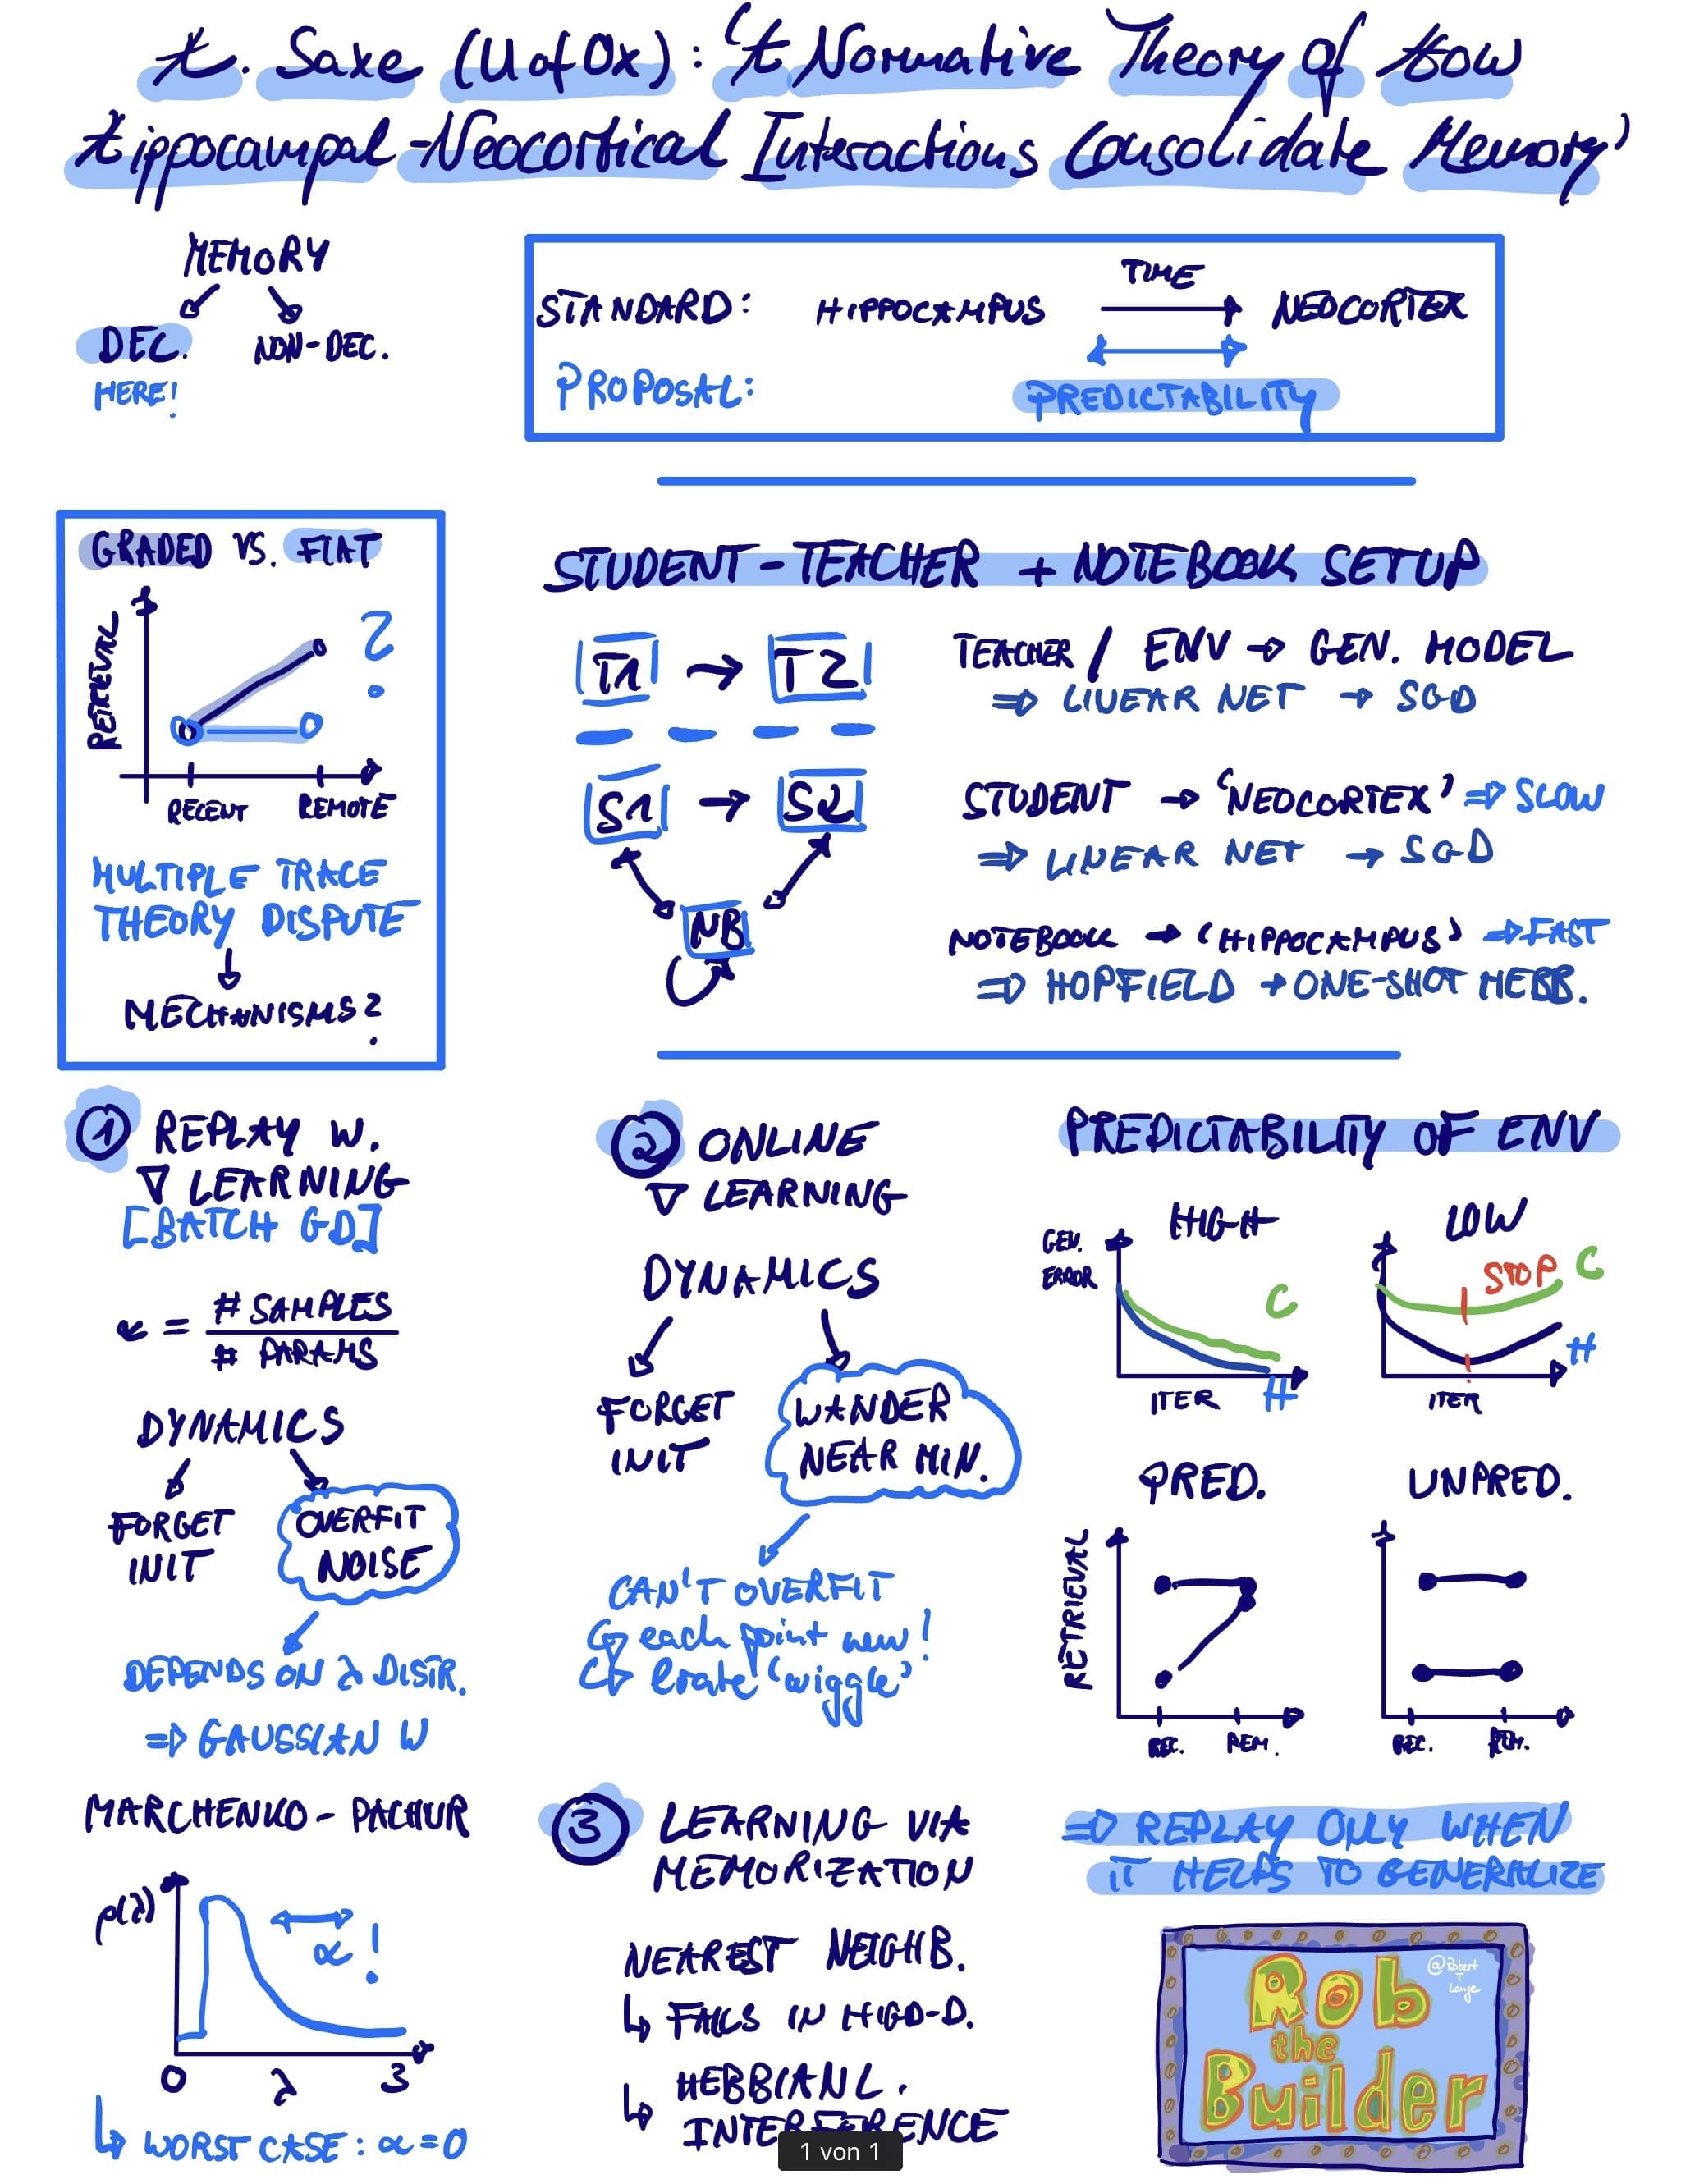 A. Saxe (U of Ox): 'A Normative Theory of How
Hippocampal-Neocortical Interactions Consolidate Memory'
MEMORY
DEC.
NON-DEC.
HERE!
STANDARD: HIPPOCAMPUS TIME NEOCORTEX
PROPOSAL: PREDICTABILITY
GRADED VS. FLAT
RETRIEVAL
?
RECENT REMOTE
MULTIPLE TRACE
THEORY DISPUTE
MECHANISMS?
STUDENT-TEACHER + NOTEBOOK SETUP
T1 → T2
S1 → S2
NB
TEACHER / ENV → GEN. MODEL
⇒ LINEAR NET → SGD
STUDENT → 'NEOCORTEX' ⇒ SLOW
⇒ LINEAR NET → SGD
NOTEBOOK → 'HIPPOCAMPUS' ⇒ FAST
⇒ HOPFIELD → ONE-SHOT HEBB.
1 REPLAY W.
∇ LEARNING
[BATCH GD]
α = # SAMPLES
# PARAMS
DYNAMICS
FORGET
INIT
OVERFIT
NOISE
DEPENDS ON λ DISTR.
⇒ GAUSSIAN W
MARCHENKO-PACHUR
ρ(λ)
α!
0 λ 3
↳ WORST CASE: α=0
2 ONLINE
∇ LEARNING
DYNAMICS
FORGET
INIT
WANDER
NEAR MIN.
CAN'T OVERFIT
↳ each point new!
↳ lrate 'wiggle'
3 LEARNING VIA
MEMORIZATION
NEAREST NEIGHB.
↳ FAILS IN HIGD-D.
↳ HEBBIAN L.
INTERFERENCE
PREDICTABILITY OF ENV
HIGH
GEN.
ERROR
C
H
ITER
LOW
STOP C
H
ITER
PRED.
UNPRED.
RETRIEVAL
REC. REM.
REC. REM.
⇒ REPLAY ONLY WHEN
IT HELPS TO GENERALIZE
Rob
the
Builder
@Robert
T
Lange
1 von 1